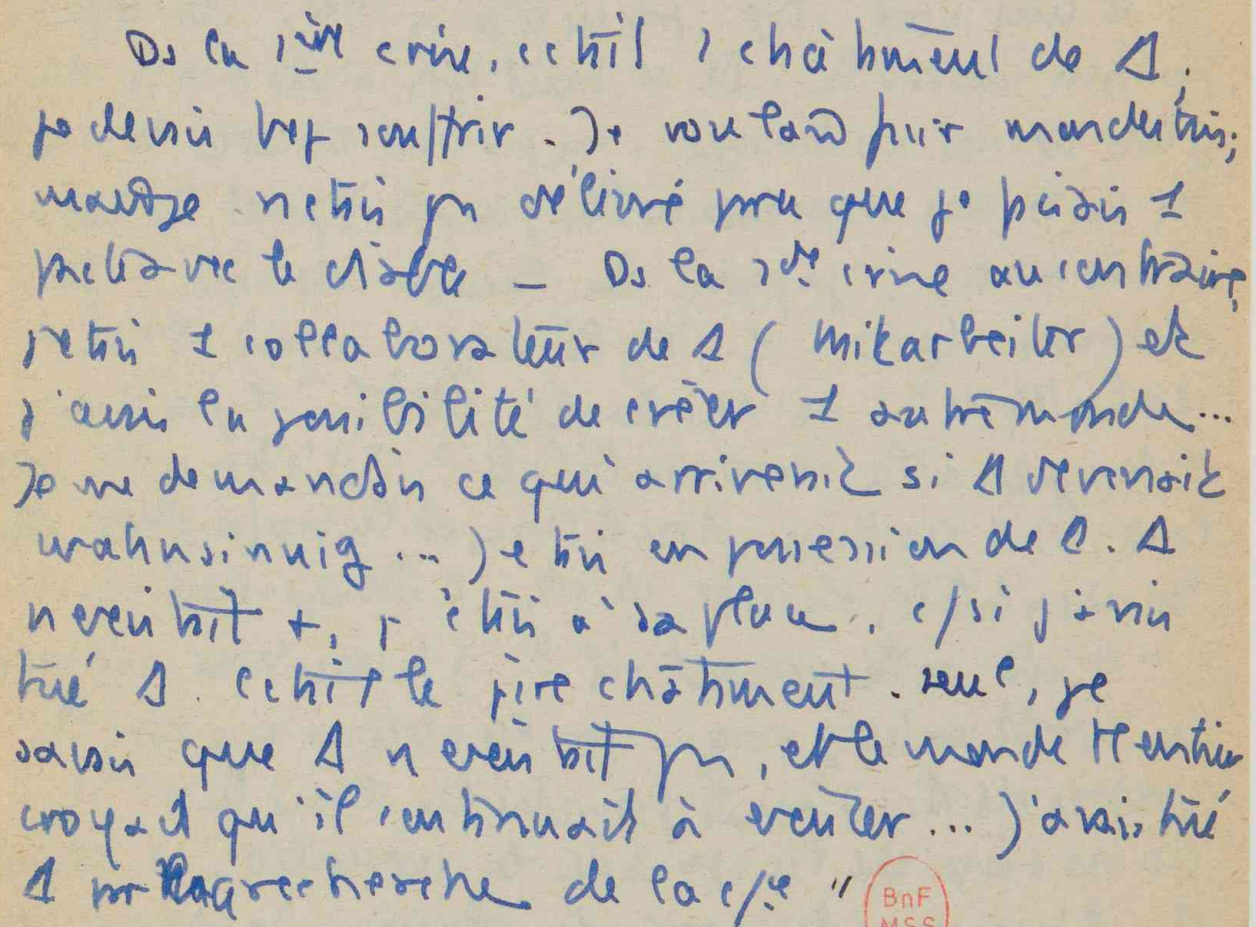 Ds la 1ère crise, c'était 1 châtiment de Δ,
je devais bcp souffrir. Je voulais punir
m'a été pas délivré pr que je puisse 1
pacte avec le diable — Ds la 2de crise au contraire,
j'étais 1 collaborateur de Δ (Mitarbeiter) et
j'avais la possibilité de créer 1 autre monde...
Je me demandais ce qui arriverait si Δ devenait
wahnsinnig ... Je étais en possession de Δ. Δ
n'existait +, j'étais à sa place. c/si j'avais
tué Δ. C'était le pire châtiment. seul, je
savais que Δ n'existait pas, et le monde entier
croyait qu'il continuait à exister... J'avais tué
Δ pr la recherche de la c/ce"
BnF
MSS